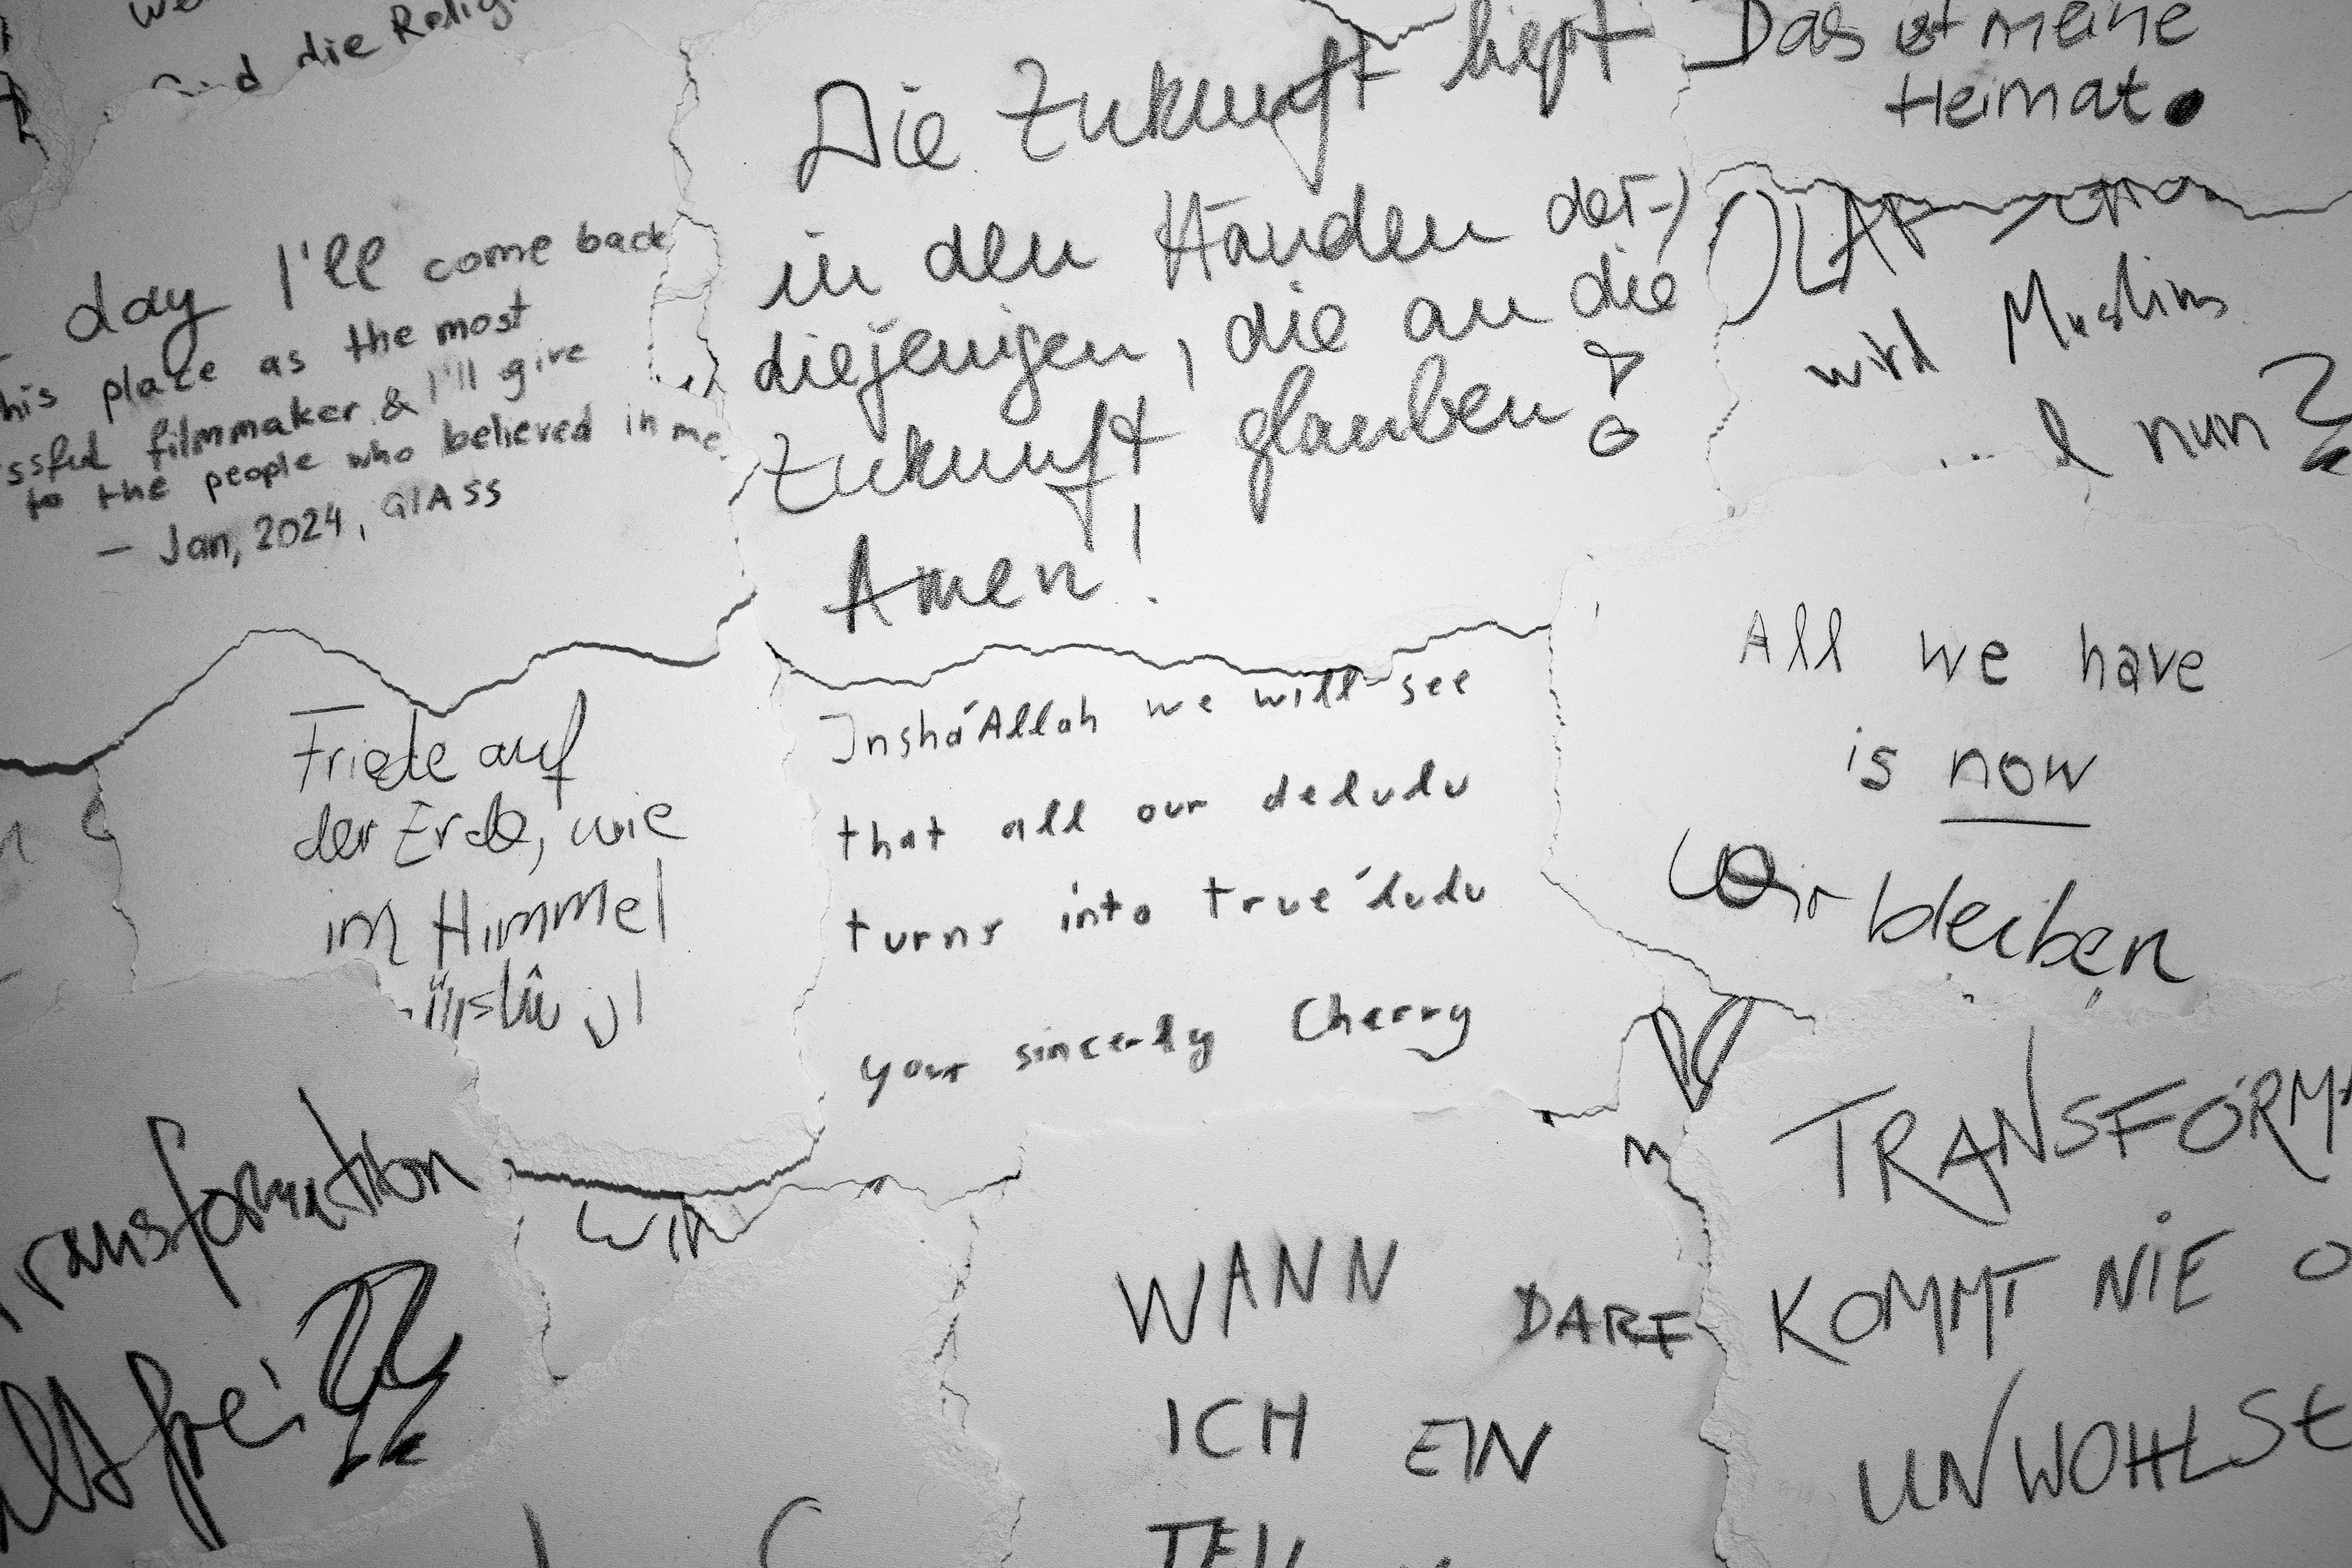 die Relig
day I'll come back
his place as the most
ssful filmmaker & I'll give
to the people who believed in me.
– Jan, 2024, GlASS
Die Zukunft liegt
in den Händen der-)
diejenigen, die an die
Zukunft glauben!
Amen!
Das ist meine
Heimat.
OLAF
wird Muslim
nun?
Friede auf
der Erde, wie
im Himmel
Inshá'Allah we will see
that all our deludu
turns into true'dudu
your sincerly Cherry
All we have
is now
Wir bleiben
Transformation
frei??
Wir
WANN DARF
ICH EIN
TEIL
TRANSFORMA
KOMMT NIE O
UNWOHLSE